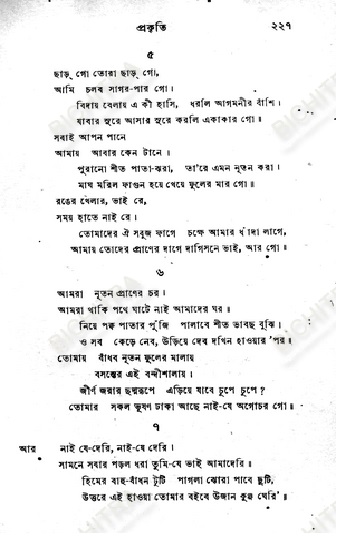 প্রকৃতি ২২৭
৫
ছাড়্ গো তোরা ছাড়্ গো,
আমি চলব সাগর-পার গো।
বিদায় বেলায় এ কী হাসি, ধরলি আগমনীর বাঁশি।
যাবার সুরে আসার সুরে করলি একাকার গো॥
সবাই আপন পানে
আমায় আবার কেন টানে॥
পুরানো শীত পাতা-ঝরা, তা'রে এমন নূতন করা।
মাঘ মরিল ফাগুন হয়ে খেয়ে ফুলের মার গো॥
রঙের খেলার, ভাই রে,
সময় হাতে নাই রে।
তোমাদের ঐ সবুজ ফাগে চক্ষে আমার ধাঁদা লাগে,
আমায় তোদের প্রাণের দাগে দাগিসনে ভাই, আর গো॥
৬
আমরা নূতন প্রাণের চর।
আমরা থাকি পথে ঘাটে নাই আমাদের ঘর॥
নিয়ে পক্ব পাতার পুঁজি পালাবে শীত ভাবছ বুঝি।
ও সব কেড়ে নেব, উড়িয়ে দেব দখিন হাওয়ার 'পর॥
তোমায় বাঁধব নূতন ফুলের মালায়
বসন্তের এই বন্দীশালায়।
জীর্ণ জরার ছদ্মরূপে এড়িয়ে যাবে চুপে চুপে?
তোমার সকল ভূষণ ঢাকা আছে নাই-যে অগোচর গো॥
৭
আর নাই যে-দেরি, নাই-যে দেরি।
সামনে সবার পড়ল ধরা তুমি-যে ভাই আমাদেরি॥
হিমের বাহু-বাঁধন টুটি পাগলা ঝোরা পাবে ছুটি,
উত্তরে এই হাওয়া তোমার বইবে উজান কুঞ্জ ঘেরি'॥